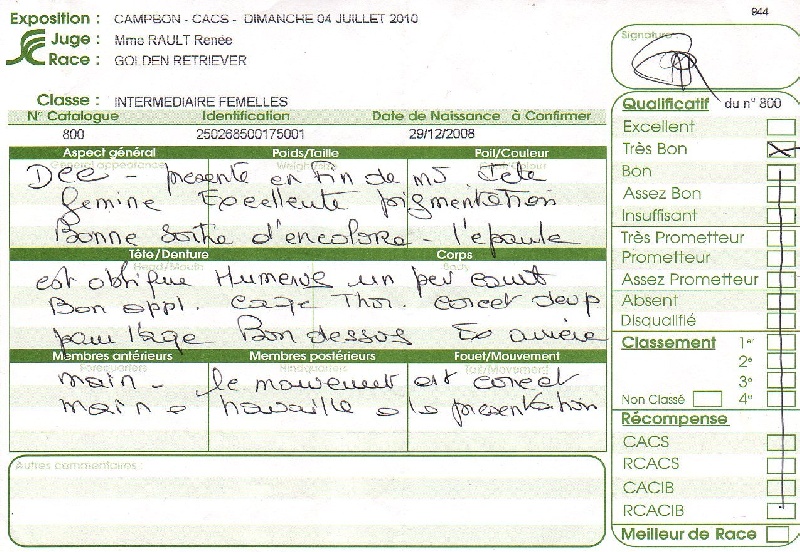 944
Exposition : CAMPBON - CACS - DIMANCHE 04 JUILLET 2010
Juge : Mme RAULT Renée
Race : GOLDEN RETRIEVER
Classe : INTERMEDIAIRE FEMELLES
N° Catalogue Identification Date de Naissance à Confirmer
800 250268500175001 29/12/2008
Aspect général Poids/Taille Poil/Couleur
General appearance
presente en fin de Tete
femine Excellente pigmentation
Bonne Sortie d'encolure - l'epaule
Tête/Denture Corps
Head/Mouth Body
est oblique Humerus un peu court
Bon appl. cage Thor. corect deup
pour l'age Bon dessus Ex arriere
Membres antérieurs Membres postérieurs Fouet/Mouvement
Forequarters Hindquarters Tail/Movement
main - le mouvement est corect
main travaille la presentation
Autres commentaires :
Signature :
Qualificatif du n° 800
Excellent
Très Bon
Bon
Assez Bon
Insuffisant
Très Prometteur
Prometteur
Assez Prometteur
Absent
Disqualifié
Classement 1er
2e
3e
Non Classé 4e
Récompense
CACS
RCACS
CACIB
RCACIB
Meilleur de Race